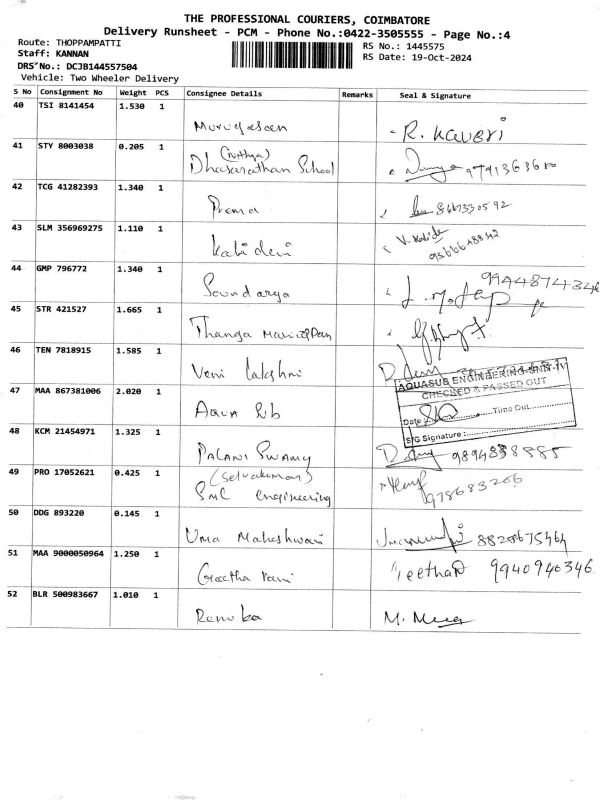 THE PROFESSIONAL COURIERS, COIMBATORE
Delivery Runsheet - PCM - Phone No.:0422-3505555 - Page No.:4
Route: THOPPAMPATTI
RS No.: 1445575
Staff: KANNAN
RS Date: 19-Oct-2024
DRS No.: DCJB144557504
Vehicle: Two Wheeler Delivery
S No Consignment No Weight PCS Consignee Details Remarks Seal & Signature
40 TSI 8141454 1.530 1
Murugasan R. Kaveri
41 STY 8003038 0.205 1
(Nithya)
Dhasarathan School
42 TCG 41282393 1.340 1
Prema 8667330592
43 SLM 356969275 1.110 1
Kalidevi V. Kalide
44 GMP 796772 1.340 1
Soundarya 9944874346
45 STR 421527 1.665 1
Thanga
46 TEN 7818915 1.585 1
Veni Lakshmi
AQUASUB ENGINEERING UNIT-IV
CHECKED & PASSED OUT
47 MAA 867381006 2.020 1
Aqua Sub
Date Time Out
S/G Signature :
48 KCM 21454971 1.325 1
Palani Swamy 9894888885
49 PRO 17052621 0.425 1
(Selvakumar)
SMC engineering
50 DDG 893220 0.145 1
Uma Maheshwari 8828675464
51 MAA 9000050964 1.250 1
Geetha rani 9940940346
52 BLR 500983667 1.010 1
Renuka M.